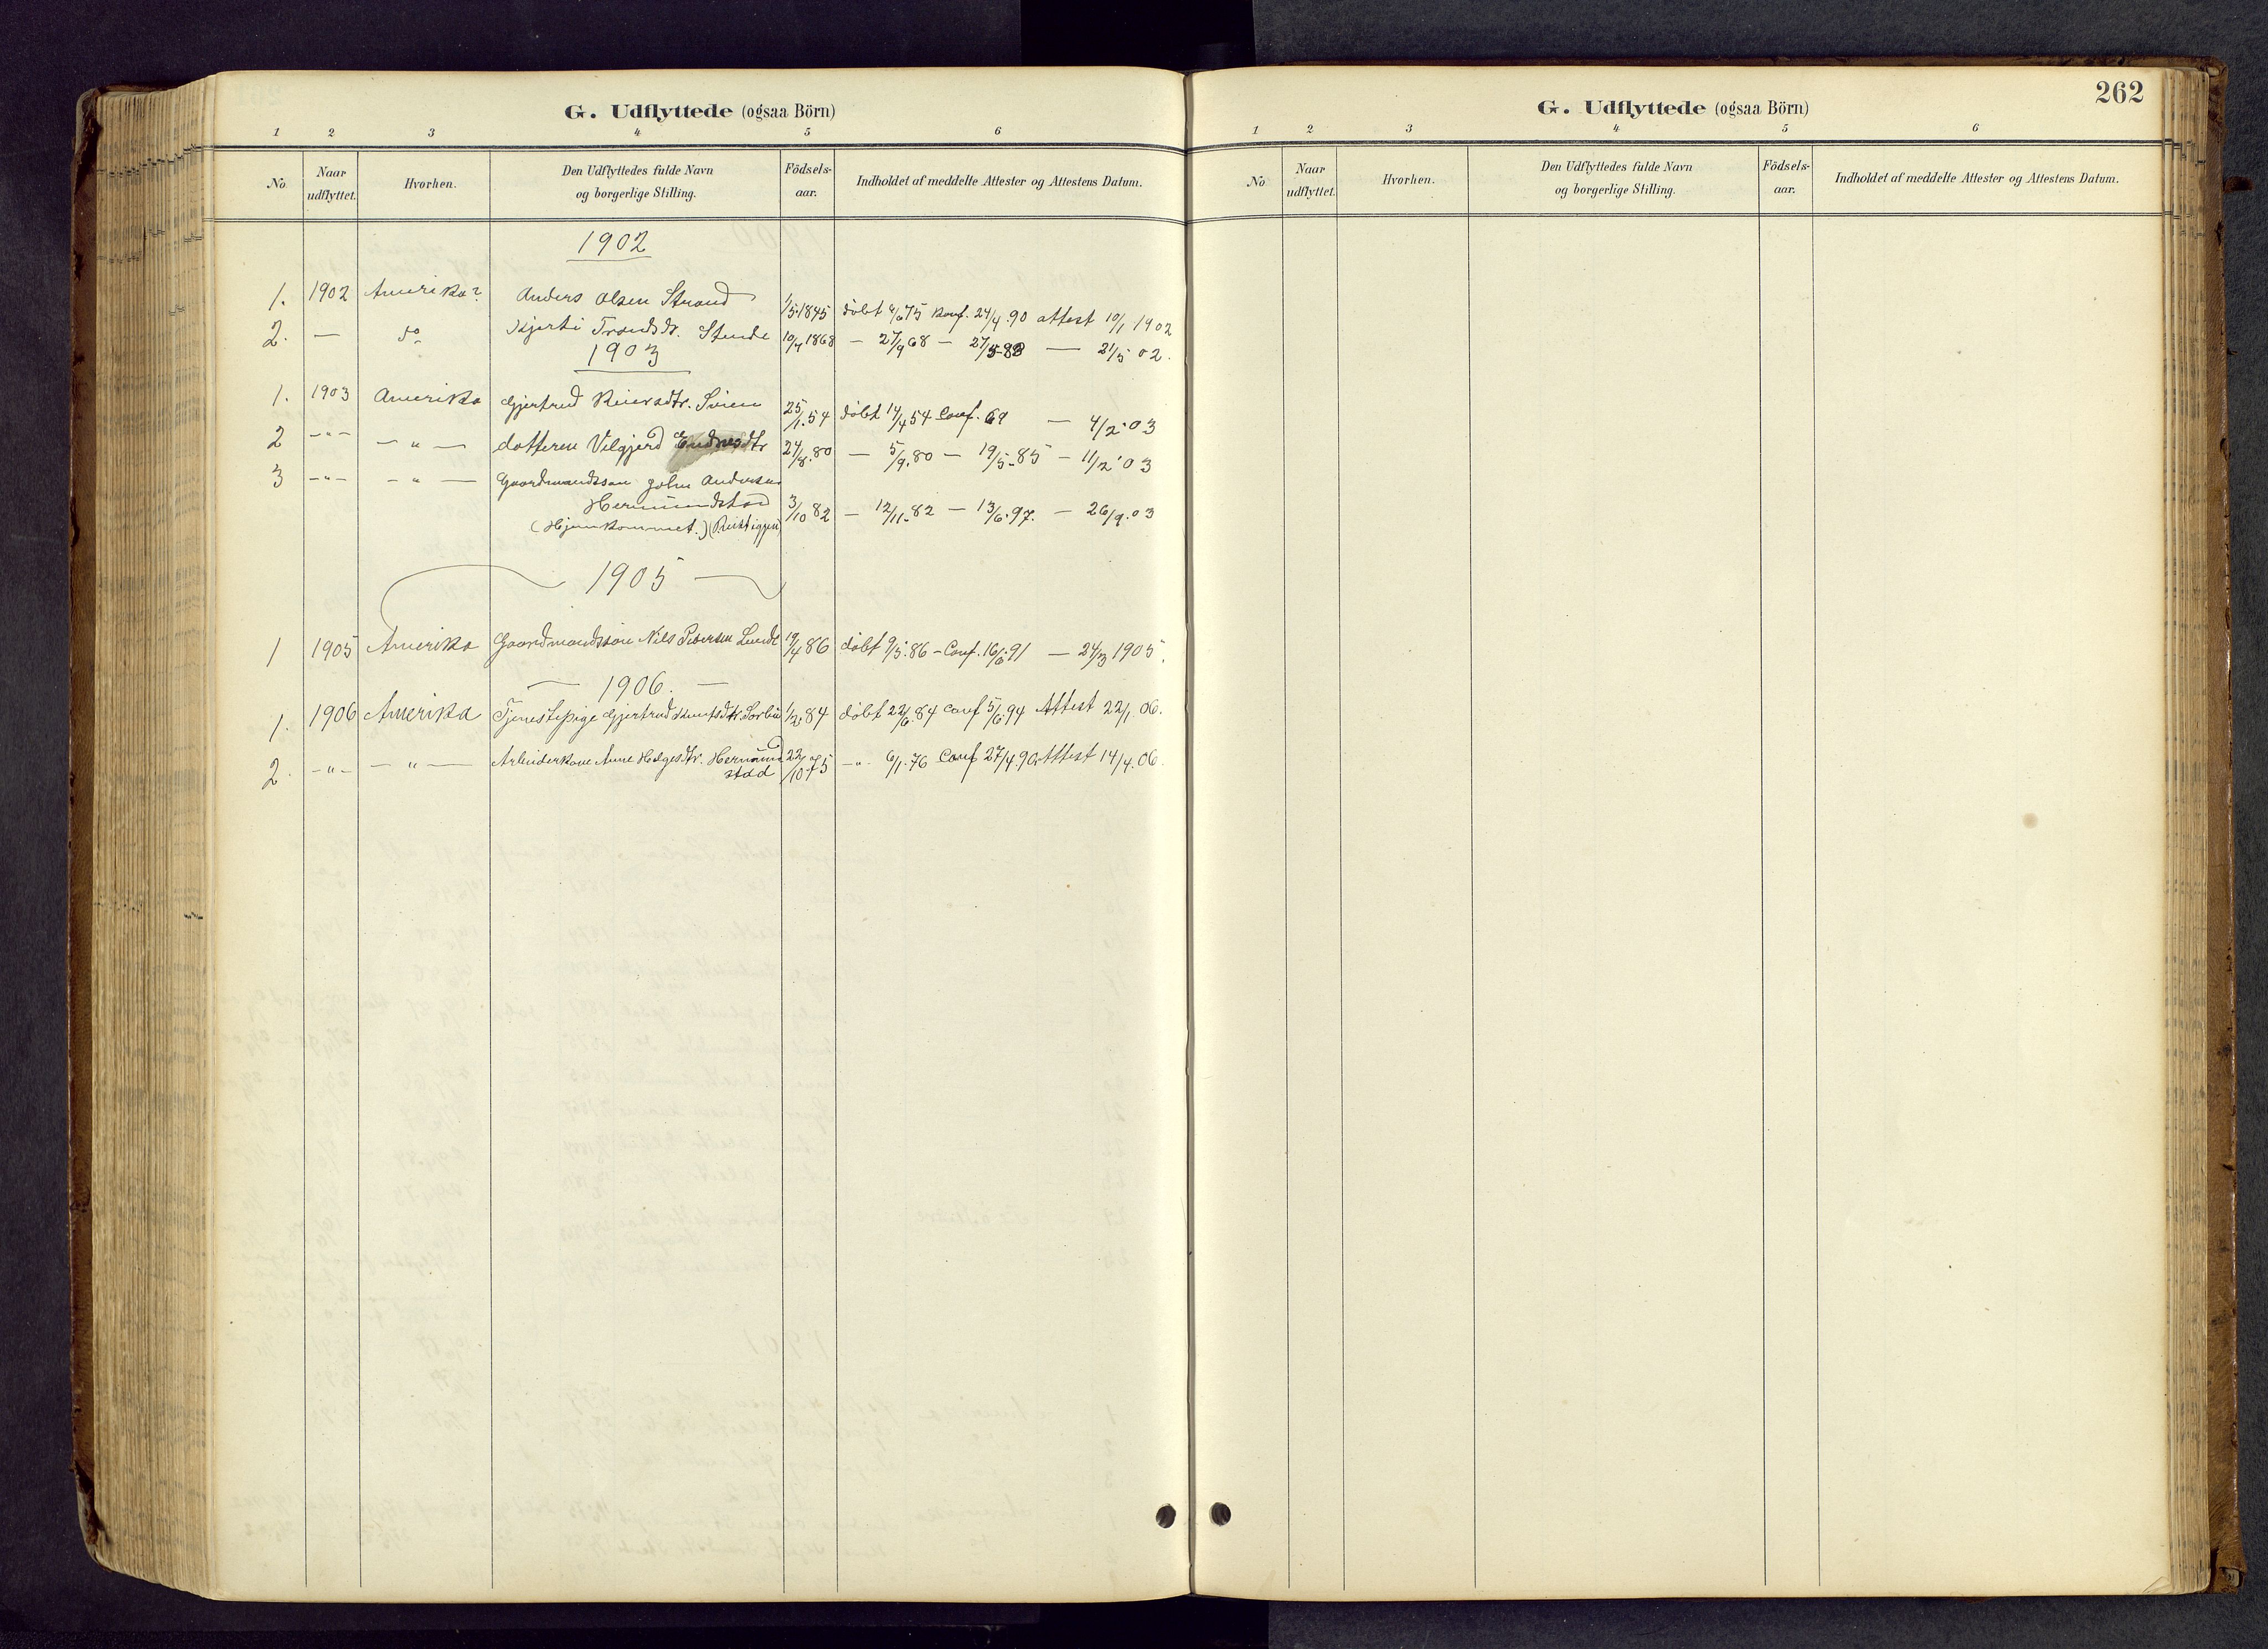 G. Udflyttede (ogsaa Börn)
1 2 3 4 5 6
No Naar udflyttet. Hvorhen. Den Udflyttedes fulde Navn og borgerlige Stilling. Födsels-aar. Indholdet af meddelte Attester og Attestens Datum.
1902
1. 1902 Amerika? Anders Olsen Strand 1/5 1845 döbt 75 Konf. 24/4 90 attest 10/1 1902
2. — do Kjersti Trondsdr. Stende 10/7 1868 — 27/9 68 — 27/5 83 — 21/5 02.
1903
1. 1903 Amerika Gjertrud Reiersdtr. Svien 25/1.54 döbt 17/4 54 Conf. 69 — 4/2.03
2 -"- — " — datteren Vilgjerd Endresdtr 24/8.80 — 5/9.80 — 19/5.85 — 11/2'03
3 -"- — " — Gaardmandssön John Andersen
Hermundstad 3/10 82 — 12/11.82 — 13/6.97. — 26/9.03
(Hjemkommet.) (Reist igjen)
— 1905 —
1 1905 Amerika Gaardmandssön Nils Pedersen Lunde 19/4 86 döbt 9/5.86 — Conf. 16/6.91 — 24/3 1905.
— 1906. —
1. 1906 Amerika Tjenestepige Gjertrud Knutsdtr. Sorbu 1/2.84 döbt 22/6.84 Conf 5/6.94 Attest 22/1 06.
2. -"- — " — Arbeiderkone Anne Helgesdtr. Hermund
stad 22/10 75 -"- 6/1.76 Conf 27/4.90 Attest 14/4.06.
262
G. Udflyttede (ogsaa Börn)
1 2 3 4 5 6
No Naar udflyttet. Hvorhen. Den Udflyttedes fulde Navn og borgerlige Stilling. Födsels-aar. Indholdet af meddelte Attester og Attestens Datum.